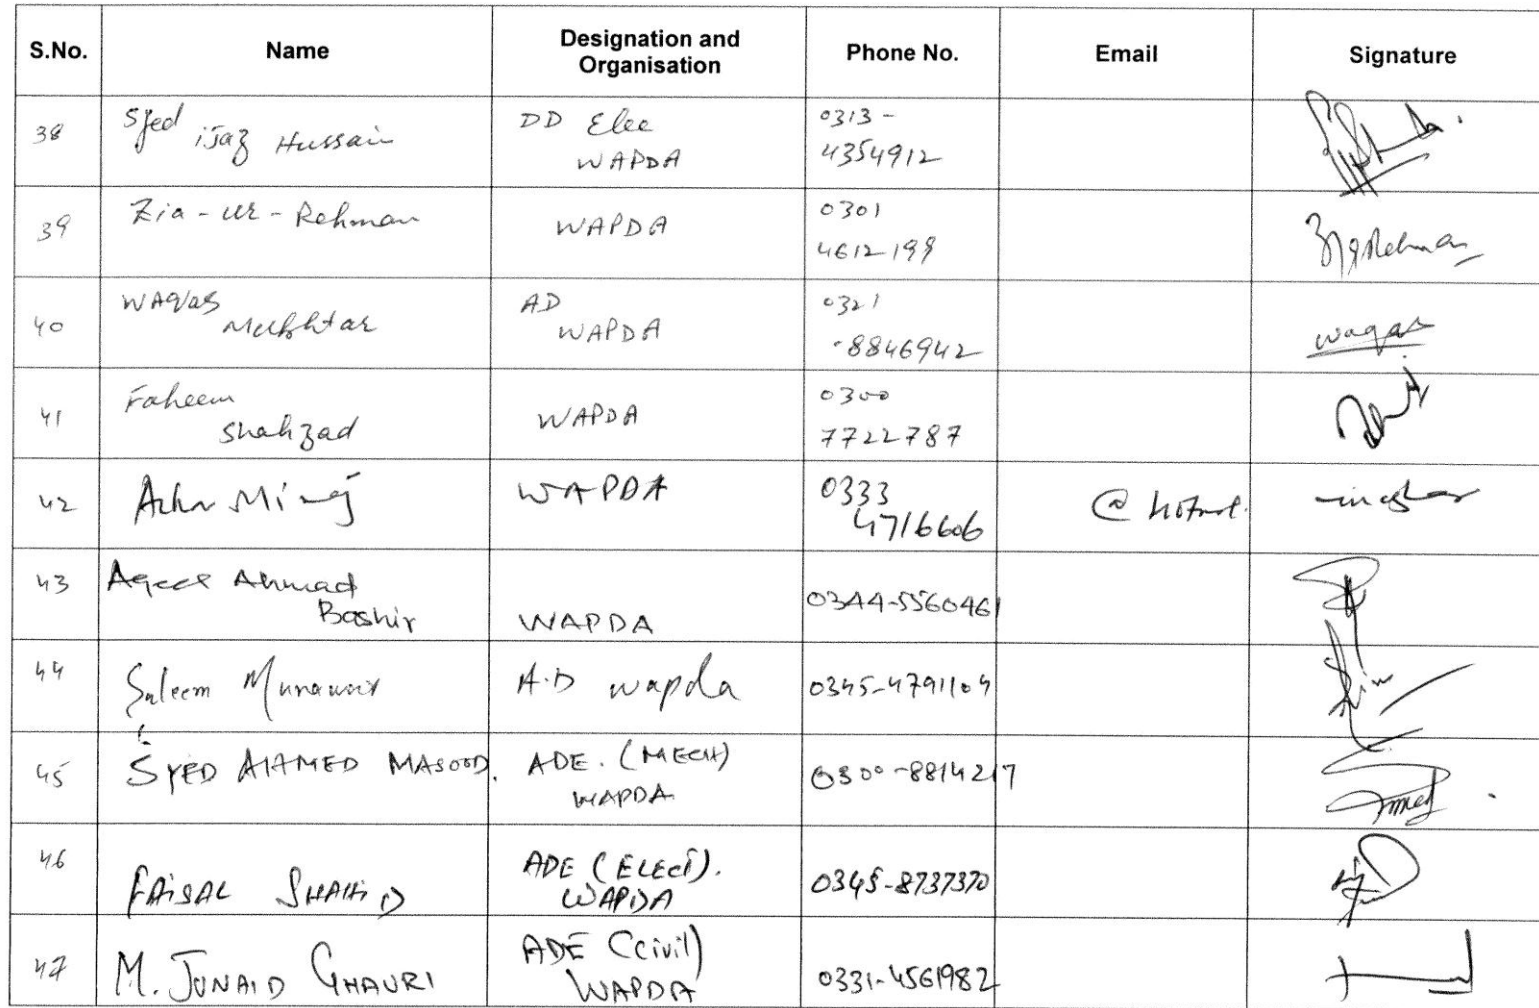 S.No. Name Designation and Organisation Phone No. Email Signature
38 Syed ijaz Hussain DD Elec WAPDA 0313-4354912
39 Zia-ur-Rehman WAPDA 0301 4612199
40 WAQas Mukhtar AD WAPDA 0321-8846942 waqas
41 Faheem Shahzad WAPDA 0300 7722787
42 WAPDA 0333 4716606
43 Aqeel Ahmad Bashir WAPDA 0344-5560461
44 Saleem Munawar A.D wapda 0345-4791104
45 SYED AHAMED MASOOD. ADE. (MECH) WAPDA 0300-8814217
46 FAISAL SHAHID ADE (ELECT). WAPDA 0345-8737370
47 M. JUNAID GHAURI ADE (Civil) WAPDA 0331-4561982